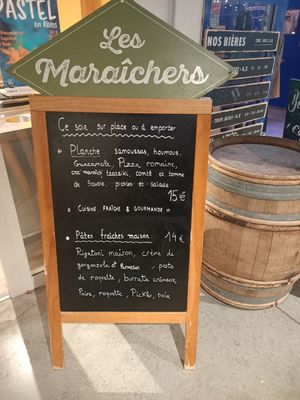 PASTEL
en Albens
Les
Maraîchers
NOS BIÈRES
Ce soir sur place ou à emporter
Planche : samoussas, houmous,
Guacamole, Pizza romaine,
tzatziki, comté et tomme
de Savoie, pickles et salade
15€
« CUISINE FRAÎCHE & GOURMANDE »
Pâtes fraîches maison : 14€
Rigatoni maison, crème de
gorgonzola et Parmesan, pesto
de roquette, burrata crémeuse
Poire, roquette, Pickles, noix